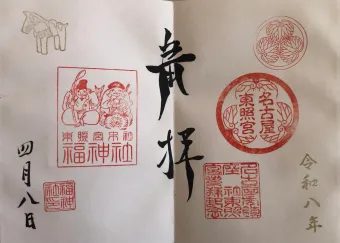 令和八年
名古屋
東照宮
奉拝
東照宮末社
福神社
四月八日